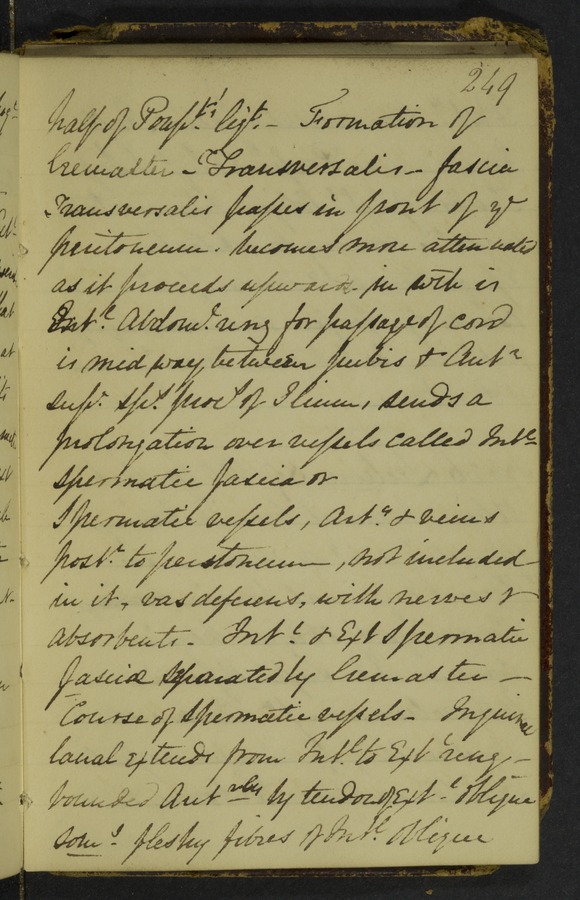 249
half of Poup.ts' ligt. - Formation of
Cremaster - Transversalis - fascia
Transversalis passes in front of ye
peritoneum. becomes more attenuated
as it proceeds upwards. in wch is
Intl. Abdoml. ring for passage of cord
is mid way between pubis & Antr
supr. spl. procs of Ilium, sends a
prolongation over vessels called Intl
spermatic fascia or
Spermatic vessels, Arty. & veins
postr. to peritoneum, not included
in it, vas deferens, with nerves &
absorbents. Intl. & Extl Spermatic
fasciæ separated by Cremaster -
Course of Spermatic vessels - Inguinal
Canal extends from Intl. to Extl ring, -
bounded Antrly by tendon of Extl. oblique
soms. fleshy fibres of Intl. oblique